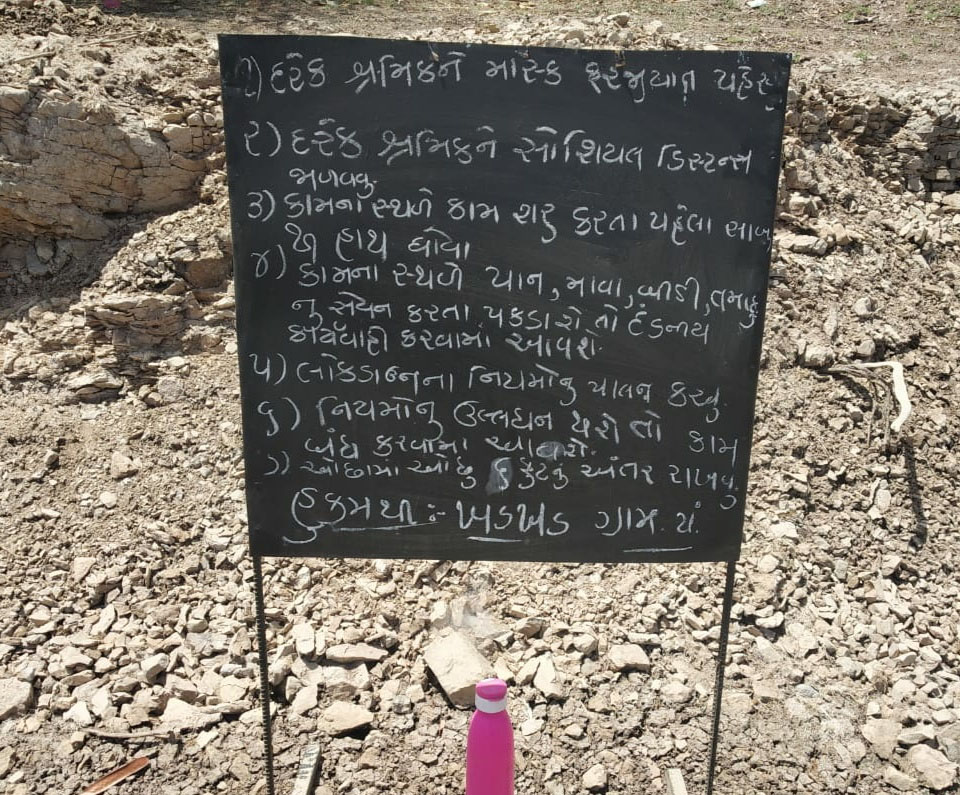 ૧) દરેક શ્રમિકને માસ્ક ફરજીયાત પહેરવુ
૨) દરેક શ્રમિકને સોશિયલ ડિસ્ટન્સ
જાળવવુ.
૩) કામના સ્થળે કામ શરુ કરતા પહેલા સાબુ
થી હાથ ધોવા
૪) કામના સ્થળે પાન, માવા, બીડી, તમાકુ
નુ સેવન કરતા પકડાશે તો દંડનીય
કાર્યવાહી કરવામાં આવશે.
૫) લોકડાઉનના નિયમોનુ પાલન કરવુ.
૬) નિયમોનુ ઉલ્લઘન થશે તો કામ
બંધ કરવામા આવશે.
૭) ઓછામા ઓછુ ૬ ફુટનુ અંતર રાખવુ.
હુકમથી :- ખડખડ ગ્રામ. પં.